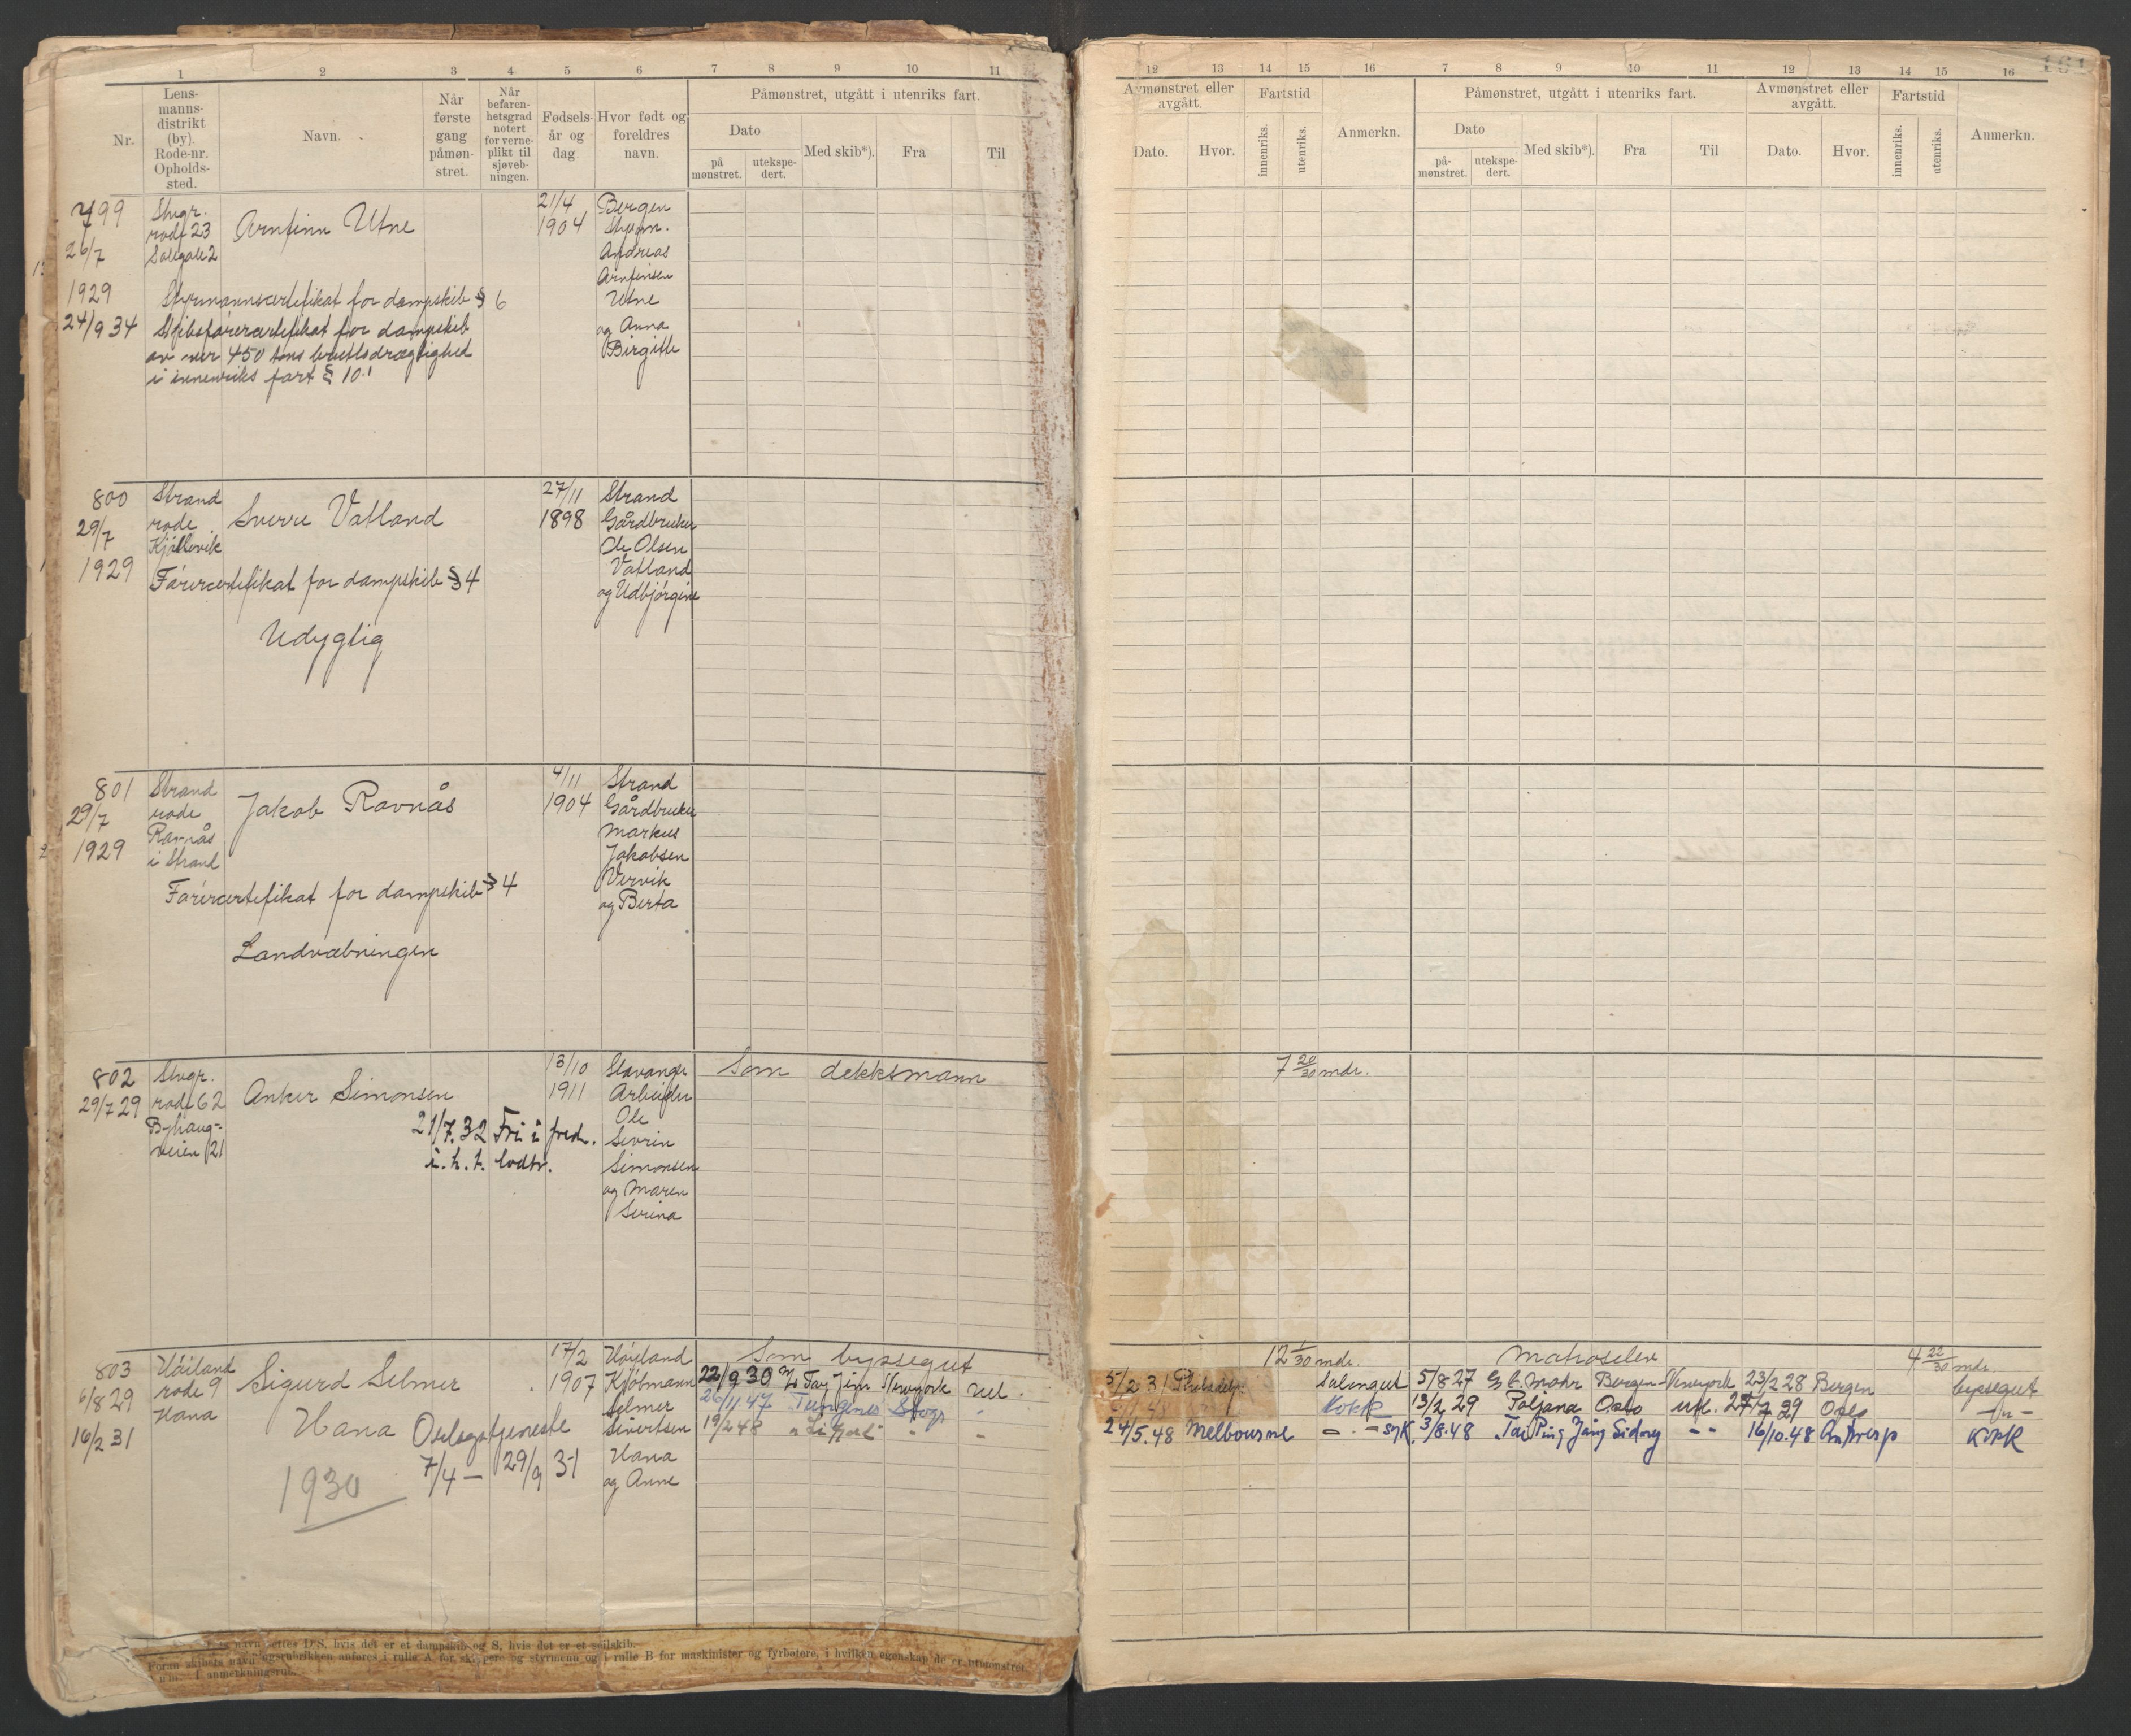 1 2 3 4 5 6 7 8 9 10 11
Nr.
Lens-
manns-
distrikt
(by).
Rode-nr.
Opholds-
sted.
Navn.
Når
første
gang
påmøn-
stret.
Når
befaren-
hetsgrad
notert
for verne-
plikt til
sjøveb-
ningen.
Fødsels-
år og
dag
Hvor født og
foreldres
navn.
Påmønstret, utgått i utenriks fart.
Dato
på
mønstret.
utekspe-
dert.
Med skib*).
Fra
Til
799
26/7
1929
24/9 34
Stvgr.
rode 23
Arnfinn Utne
21/4
1904
Bergen
Styrm.
Andreas
Arnfinsen
Utne
og Anna
Birgitte
Styrmannscertifikat for dampskib § 6
Skibsførercertifikat for dampskib
av over 450 tons bruttodrægtighed
i innenriks fart § 10.1
800
29/7
1929
Strand
rode
Kjøllevik
Sverre Vatland
27/11
1898
Strand
Gårdbruker
Ole Olsen
Vatland
og Udbjørgine
Førercertifikat for dampskib § 4
Udygtig
801
29/7
1929
Strand
rode
Ravnås
i Strand
Jakob Ravnås
4/11
1904
Strand
Gårdbruker
Markus
Jakobsen
Vervik
og Berta
Førercertifikat for dampskib § 4
Landvæbningen
802
29/7 29
Stvgr.
rode 62
Byhaug-
veien 21
Anker Simonsen
13/10
1911
Stavanger
Arbeider
Ole
Sevrin
Simonsen
og Maren
Serina
21/7.32 Fri i fred.
i. h. t. lodtr.
Som dekksmann
803
6/8 29
16/2 31
Høiland
rode 9
Hana
Sigurd Selmer
Hana
1930
Oplagstjeneste
7/4 – 29/9 31
17/2
1907
Høyland
Kjøbmann
Selmer
Sivertsen
Hana
og Anne
Som byssegut
22/9 30 Tai Jin Newyork utl.
26/11 47 Tungenes Stvgr "
19/2 48 " "
Foran skibets navn settes D/S, hvis det er et dampskib og S, hvis det er et seilskib.
ogsrubrikken anføres i rulle A for skippere og styrmenn og i rulle B for maskinister og fyrbøtere, i hvilken egenskap de er utmønstret
12 13 14 15 16 7 8 9 10 11 12 13 14 15 16
161
Avmønstret eller
avgått.
Dato.
Hvor.
Fartstid
innenriks.
utenriks.
Anmerkn.
Påmønstret, utgått i utenriks fart.
Dato
på-
mønstret.
utekspe-
dert.
Med skib*).
Fra
Til
Avmønstret eller
avgått.
Dato.
Hvor.
Fartstid
innenriks.
utenriks.
Anmerkn.
7 20/30 mdr.
12 1/30 mdr.
Matroselev
4 22/30 mdr.
5/2 31 Philadelp. salongut 5/8 27 G. C. Mohr Bergen Newyork 23/2 28 Bergen byssegut
Kokk 13/2 29 Poljana Oslo utl. 27/7 29 Oslo –"–
24/5.48 Melbourne – " – syk. 3/8.48 Tai Ping Yang Sidney – – 16/10.48 Antwerp Kokk